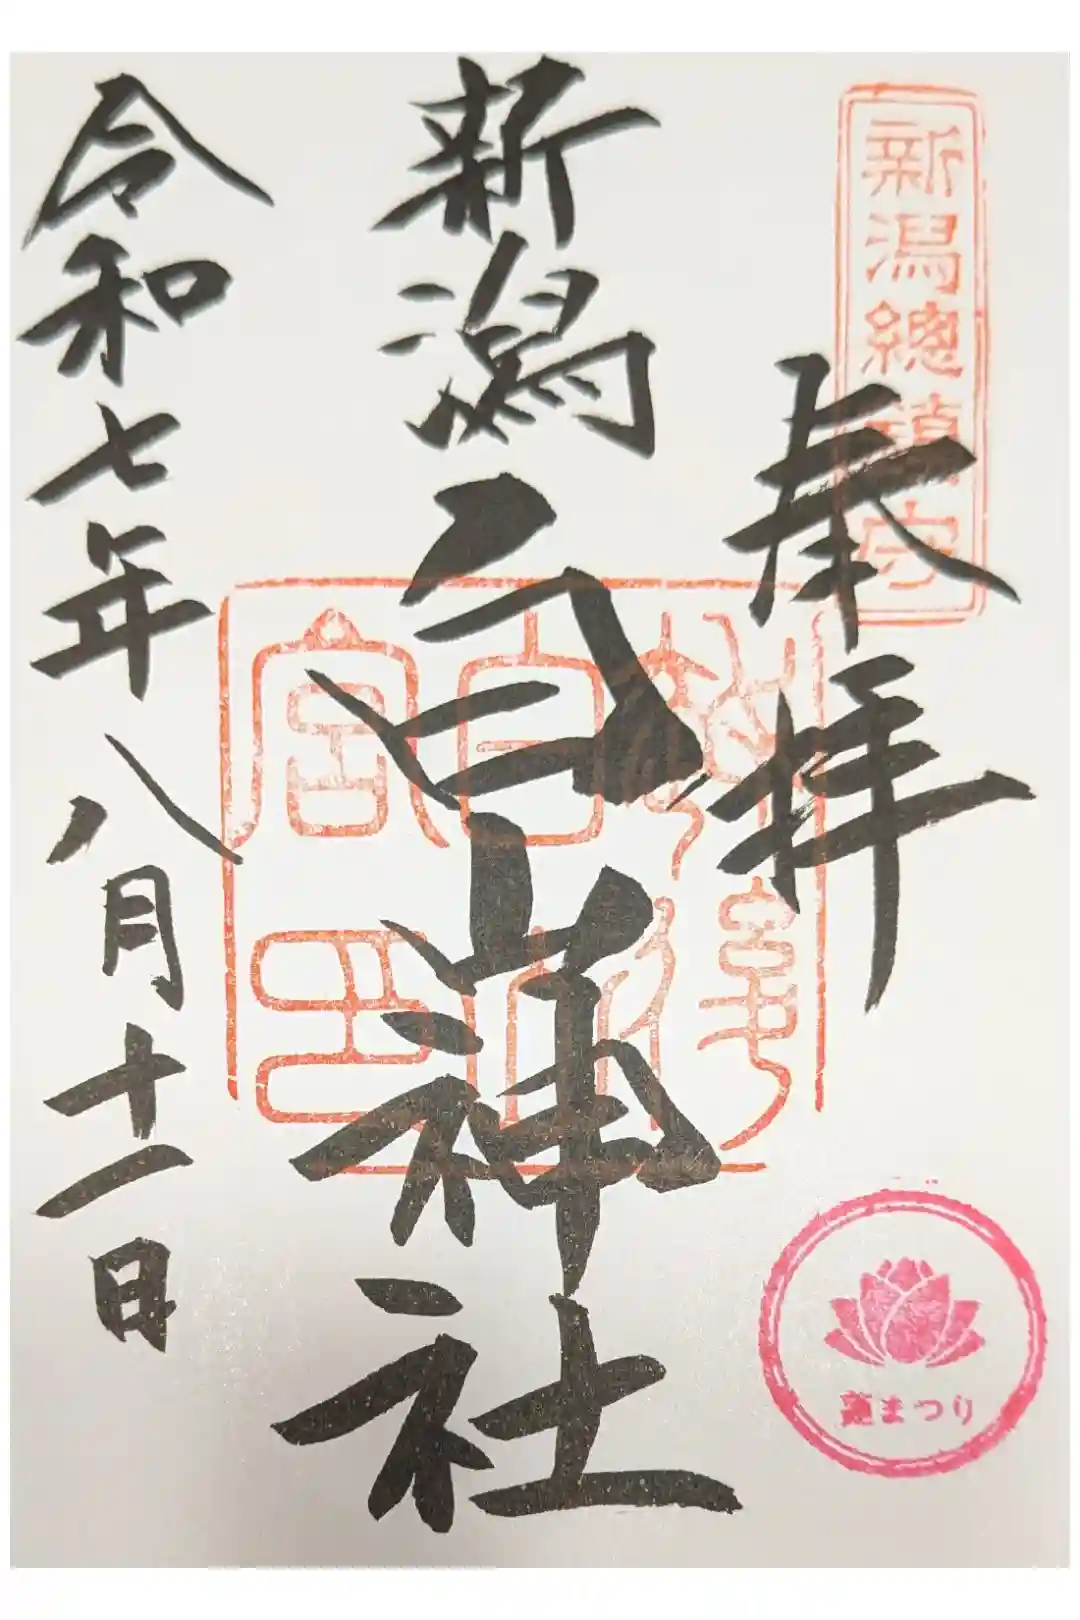 新潟總鎮守
奉拝
新潟白山神社
令和七年八月十一日
蓮まつり